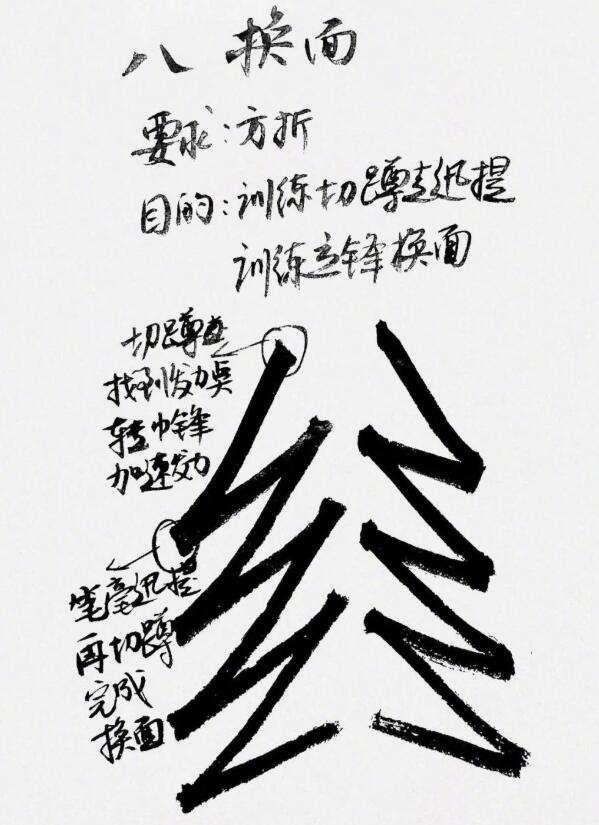 八 换面
要求:方折
目的:训练切蹲走迅提
训练立锋换面
切蹲走
找到发力点
转中锋
加速发力
笔毫迅提
再切蹲
完成
换面